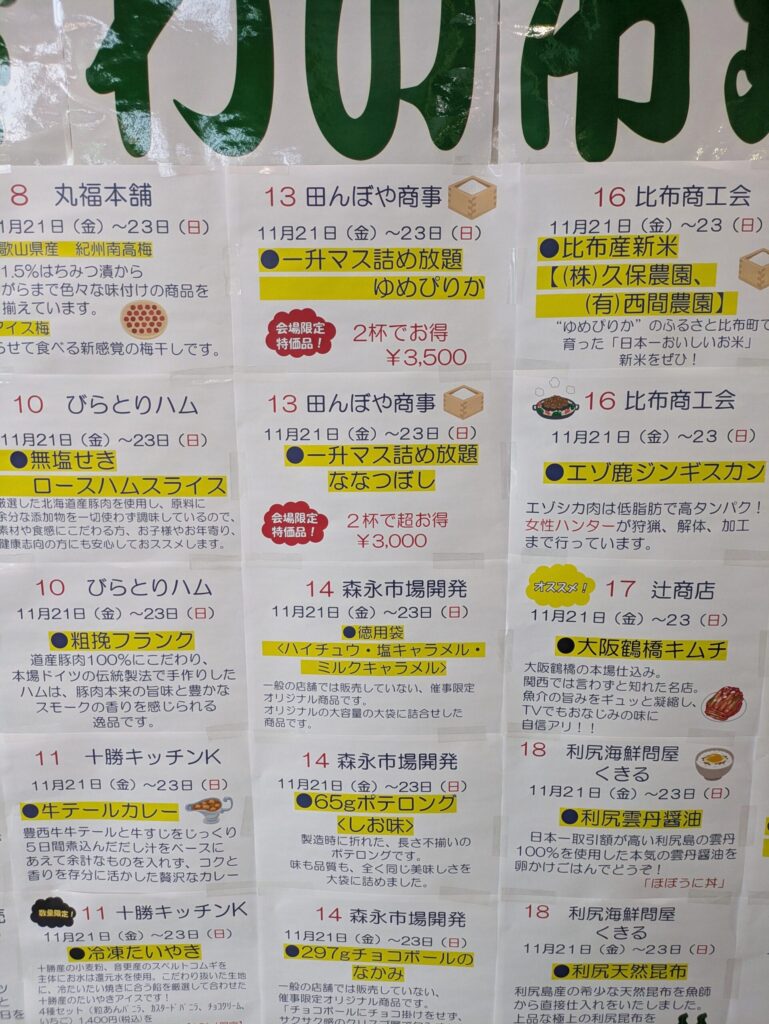 わのお
8 丸福本舗
11月21日（金）～23日（日）
歌山県産 紀州南高梅
1.5%はちみつ漬から
がらまで色々な味付けの商品を
揃えています。
アイス梅
らせて食べる新感覚の梅干しです。
10 びらとりハム
11月21日（金）～23日（日）
●無塩せき
ロースハムスライス
厳選した北海道産豚肉を使用し、原料に
余分な添加物を一切使わず調味しているので、
素材や食感にこだわる方、お子様やお年寄り、
健康志向の方にも安心しておススメします。
10 びらとりハム
11月21日（金）～23日（日）
●粗挽フランク
道産豚肉100%にこだわり、
本場ドイツの伝統製法で手作りした
ハムは、豚肉本来の旨味と豊かな
スモークの香りを感じられる
逸品です。
11 十勝キッチンK
11月21日（金）～23日（日）
●牛テールカレー
豊西牛牛テールと牛すじをじっくり
5日間煮込んだだし汁をベースに
あえて余計なものを入れず、コクと
香りを存分に活かした贅沢なカレー
数量限定！
11 十勝キッチンK
11月21日（金）～23日（日）
●冷凍たいやき
十勝産の小麦粉、音更産のスペルトコムギを
主体にお水は還元水を使用、こだわり抜いた生地
に、冷たいたい焼きに合う餡を厳選して合わせた
十勝産のたいやきアイスです！
4種セット（粒あんバニラ、カスタードバニラ、チョコクリーム、
いちご）1,400円(税込)を
13 田んぼや商事
11月21日（金）～23日（日）
●一升マス詰め放題
ゆめぴりか
会場限定
特価品！
2杯でお得
￥3,500
13 田んぼや商事
11月21日（金）～23日（日）
●一升マス詰め放題
ななつぼし
会場限定
特価品！
2杯で超お得
￥3,000
14 森永市場開発
11月21日（金）～23日（日）
●徳用袋
〈ハイチュウ・塩キャラメル・
ミルクキャラメル〉
一般の店舗では販売していない、催事限定
オリジナル商品です。
オリジナルの大容量の大袋に詰合せした
商品です。
14 森永市場開発
11月21日（金）～23日（日）
●65gポテロング
〈しお味〉
製造時に折れた、長さ不揃いの
ポテロングです。
味も品質も、全く同じ美味しさを
大袋に詰めました。
14 森永市場開発
11月21日（金）～23日（日）
●297gチョコボールの
なかみ
一般の店舗では販売していない、
催事限定オリジナル商品です。
「チョコボールにチョコ掛けをせず、
16 比布商工会
11月21日（金）～23（日）
●比布産新米
【（株）久保農園、
（有）西間農園】
“ゆめぴりか”のふるさと比布町で
育った「日本一おいしいお米」
新米をぜひ！
16 比布商工会
11月21日（金）～23（日）
●エゾ鹿ジンギスカン
エゾシカ肉は低脂肪で高タンパク！
女性ハンターが狩猟、解体、加工
まで行っています。
オススメ！
17 辻商店
11月21日（金）～23（日）
●大阪鶴橋キムチ
大阪鶴橋の本場仕込み。
関西では言わずと知れた名店。
魚介の旨みをギュッと凝縮し、
TVでもおなじみの味に
自信アリ！！
18 利尻海鮮問屋
くきる
11月21日（金）～23日（日）
●利尻雲丹醤油
日本一取引額が高い利尻島の雲丹
100%を使用した本気の雲丹醤油を
卵かけごはんでどうぞ！
「ほぼうに丼」
18 利尻海鮮問屋
くきる
11月21日（金）～23日（日）
●利尻天然昆布
利尻島産の希少な天然昆布を漁師
から直接仕入れをいたしました。
上品な極上の利尻昆布を